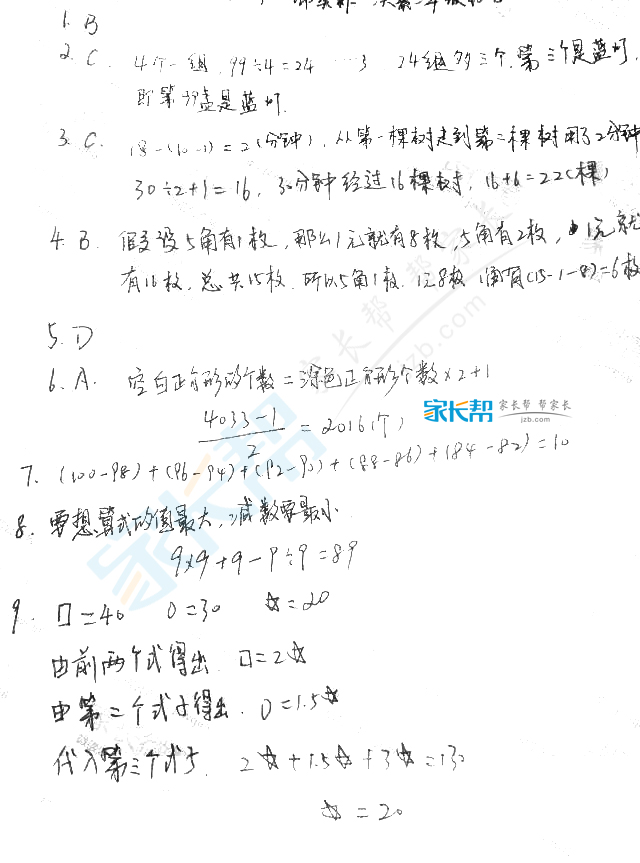 1. B
2. C. 4个一组, 99÷4=24 … 3 24组多三个, 第三个是蓝灯,
即第99盏是蓝灯.
3. C. 18÷(10-1)=2(分钟), 从第一棵树走到第二棵树用了2分钟
30÷2+1=16, 30分钟经过16棵树, 16+6=22(棵)
4. B. 假设5角有1枚, 那么1元就有8枚, 5角有2枚, 1元就
有16枚, 总共15枚. 所以5角1枚. 1元8枚 1角有(15-1-8)=6枚
5. D
6. A. 空白正方形的个数=涂色正方形个数×2+1
4033-1
2
=2016(个)
家长帮 家长帮 帮家长
jzb.com
7. (100-98)+(96-94)+(92-90)+(88-86)+(84-82)=10
8. 要想算式的值最大, 减数要最小
9×9+9-9÷9=89
9. □=40 O=30 ☆=20
由前两个式得出 □=2☆
由第二个式子得出. O=1.5☆
代入第三个式子. 2☆+1.5☆+3☆=130
☆=20